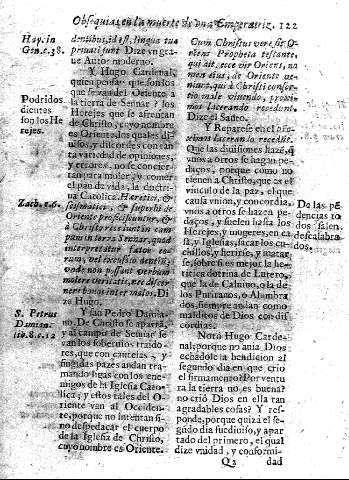 Obsequias en la muerte de una Emperatriz. 122
Hay. in
Gen. c. 38.
Podridos
dientes
son los He
rejes.
Zach. c. 6.
S. Petrus
Damian.
lib. 8. c. 12
dentibus, id est, lingua tua
Dize un gra-
ue Autor moderno.
Y Hugo Cardenal,
quien pensays que son los
que se vã del Oriente a
la tierra de Sennar? los
Herejes que se afrentan
de Christo, cuyo nombre
es Oriente, los quales di-
uisos, y discordes con tan
ta variedad de opiniones,
y errores, no se concier-
tan para moler, y comer
el pan de vida, la doctri-
na Catolica. Heretici, &
scismatici, & superbi de
Oriente proficiscuntur, &
à Christo recedunt in cam
pum in terra Sennar, quod
interpretatur fœtor eo-
rum, vel excussio dentiũ,
unde non possunt verbum
molere veritatis, nec discer
nere bonos inter malos. Di
ze Hugo.
Y san Pedro Damia-
no. De Christo se aparta,
y al campo de Sennar se
van los soberuios traido-
res, que con cautelas, y
fingidas pazes andan tra-
mando ligas con los ene-
migos de la Iglesia Cato-
lica; estos y tales del O-
riente van al Occiden-
te, porque no intentan si-
no despedaçar el cuerpo
de la Iglesia de Christo,
cuyo nombre es Oriente.
Cum Christus vere sit O-
riens Propheta testante,
qui ait, ecce vir Oriens, no
men eius, de Oriente ve-
niunt, qui à Christi confor-
tio male viuendo, proxi-
mos lacerando recedunt.
Dize el Santo.
Y Reparese en el pro-
ximos lacerando recedũt.
Que las diuisiones hazẽ, q̃
vnos a otros se hagan pe-
daços, porque como no
tienen a Christo, que es el
vinculo de la paz, el que
causa vniõn, y concordia,
vnos a otros se hazen pe-
daços, y suelen hasta los
Herejes, y mugeres, en ca
sa, y Iglesias, sacar los cu-
chillos, y herirse, y matar
se, sobre si es mejor la he-
retica dotrina de Lutero,
que la de Caluino, o la de
los Puritanos, o Alumbra
dos siempre andan como
malditos de Dios con dis
cordias.
Notò Hugo Carde-
nal; porque no auia Dios
echadole la bendicion al
segundo dia en que crio
el firmamento? Por ventu
ra la tierra no es buena?
no criò Dios en ella tan
agradables cosas? Y res-
ponde, porque quizà el se-
gundo dia fue diuiso, y apar
tado del primero, el qual
dize vnidad, y conformi-
Da las pẽ
dencias to
dos salen
descalabra
dos.
Q 2 dad